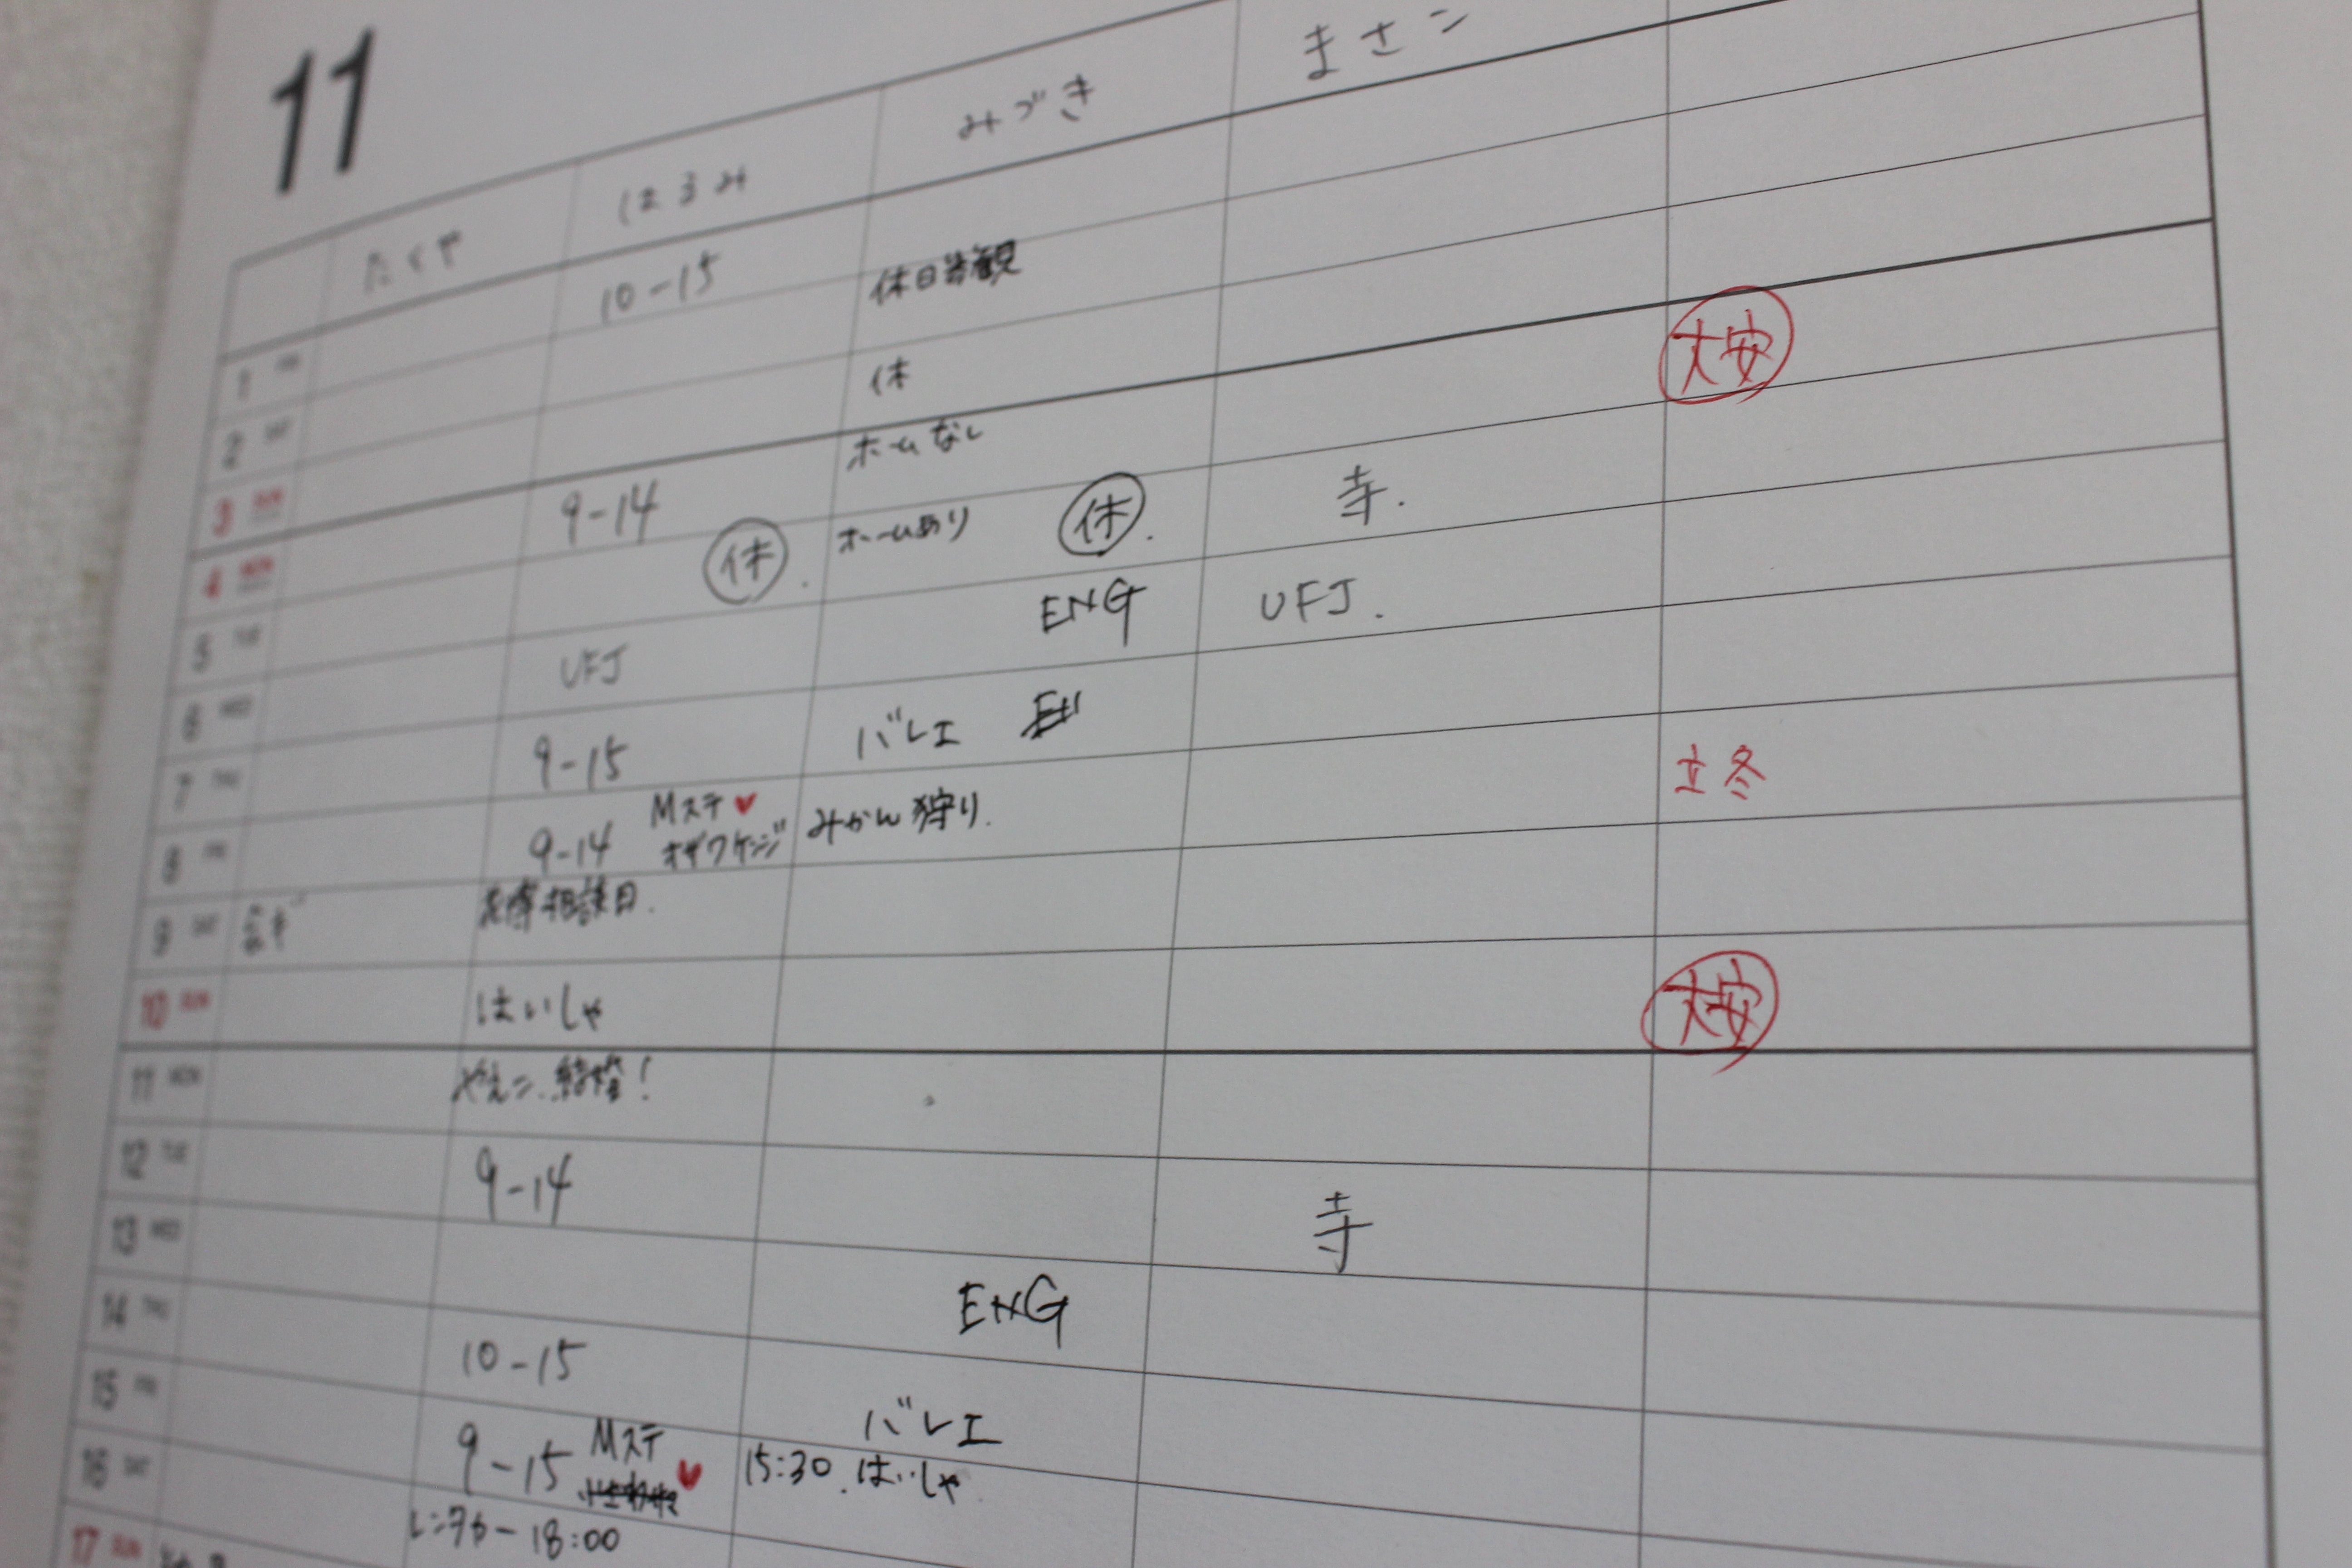 11
たくや はるみ みづき まさこ
1 FRI 10-15 休日参観
2 SAT 休
3 SUN ホームなし 大安
4 MON 9-14 休 ホームあり 休. 寺.
5 TUE ENG UFJ.
6 WED UFJ
7 THU 9-15 バレエ 立冬
8 FRI 9-14 Mステ♥ オザワケンジ みかん狩り.
9 SAT 相談日.
10 SUN はいしゃ 大安
11 MON 結婚!
12 TUE 9-14 寺
13 WED ENG
14 THU 10-15
15 FRI 9-15 Mステ ♥ バレエ
16 SAT 18:00 15:30.はいしゃ
17 SUN